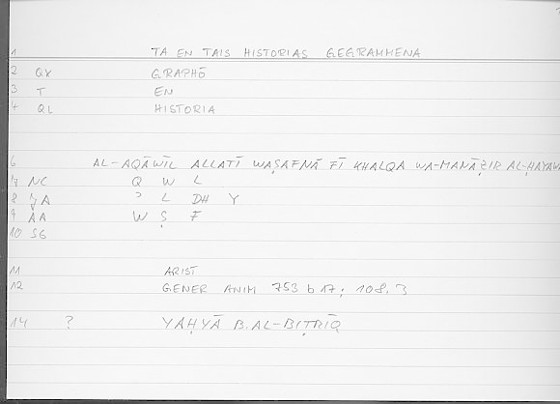 1 TA EN TAIS HISTORIAS GEGRAMMENA
2 QX GRAPHŌ
3 T EN
4 QL HISTORIA
6 AL-AQĀWĪL ALLATĪ WAṢAFNĀ FĪ KHALQA WA-MANĀẒIR AL-ḤAYAWA
7 NC Q W L
8 ʾ L DH Y
9 AA W Ṣ F
10 SG
11 ARIST
12 GENER ANIM 753 b 17; 108, 3
14 ? YAḤYĀ B. AL-BIṬRĪQ